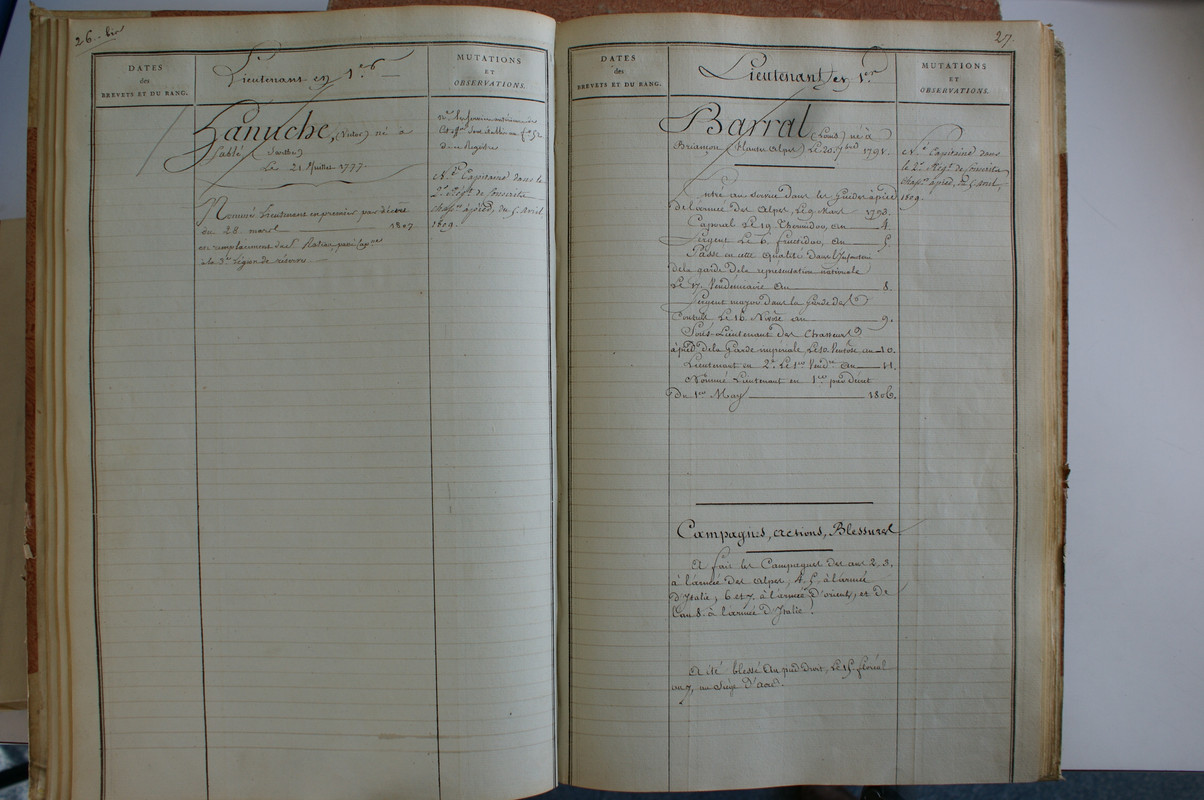 26. bis
DATES
des
BREVETS ET DU RANG.
Lieutenant en 1er
MUTATIONS
ET
OBSERVATIONS.
Lanuche, (Victor) né à
Sablé (Sarthe)
Le 21 Juillet 1777
Nommé Lieutenant en premier par décret
du 28 mars 1807
en remplacement du Sr Ratier, passé Capne
à la 3e Légion de réserve.
de ce Registre
Né Capitaine dans le
2e Régt de Conscrits
chasrs à pied, du 5 avril
1809.
27
DATES
des
BREVETS ET DU RANG.
Lieutenant en 1er
MUTATIONS
ET
OBSERVATIONS.
Barral (Louis) né à
Briançon (Hautes Alpes) Le 20. 7bre 1791.
Né Capitaine dans
le 2e Régt de Conscrits
chasrs à pied, du 5 avril,
1809.
Entré au service dans les Guides à pied
de l'armée des Alpes, Le 9 Mars 1793.
Caporal Le 19 Thermidor, an 4.
Sergent Le 6 fructidor, an 5.
Passé en cette qualité dans l'Infanterie
de la garde de la représentation nationale
Le 17 Vendémiaire an 8.
Sergent major dans la Garde des
Consuls Le 16 Nivôse an 9.
Sous-Lieutenant des Chasseurs
à pied de la Garde impériale Le 10 Ventôse an 10.
Lieutenant en 2e Le 1er Vendre an 11.
Nommé Lieutenant en 1er par décret
Du 1er May 1806.
Campagnes, actions, Blessures
A fait les Campagnes des ans 2, 3,
à l'armée des Alpes, 4, 5, à l'armée
d'Italie, 6 et 7, à l'armée d'orient, et de
l'an 8 à l'armée d'Italie.
A été blessé au pied droit, Le 15 floréal
an 7, au Siège d'acre.